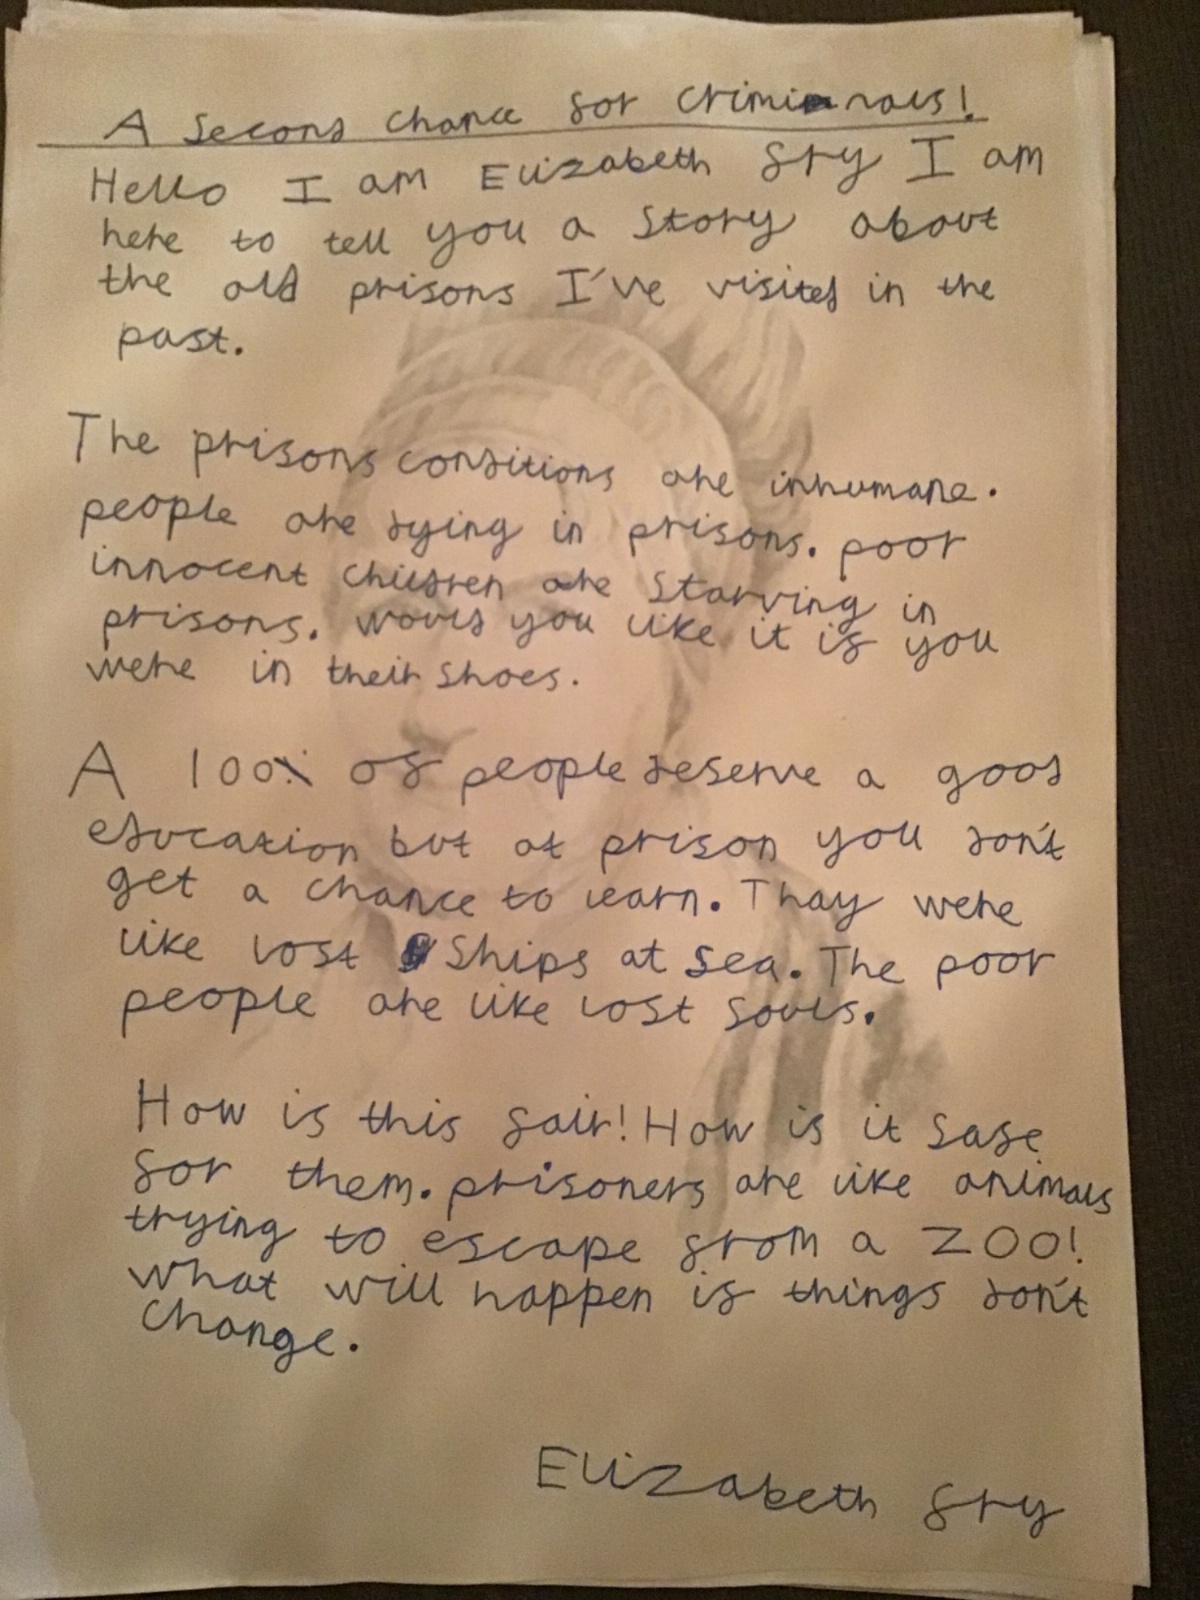 A Second chance for Criminals!
Hello I am Elizabeth fry I am
here to tell you a Story about
the old prisons I've visited in the
past.
The prisons conditions are inhumane.
people are dying in prisons. poor
innocent children are Starving in
prisons. would you like it if you
were in their shoes.
A 100% of people deserve a good
education but at prison you don't
get a chance to learn. Thay were
like lost Ships at Sea. The poor
people are like lost souls.
How is this fair! How is it safe
for them. prisoners are like animals
trying to escape from a ZOO!
what will happen if things don't
Change.
Elizabeth fry